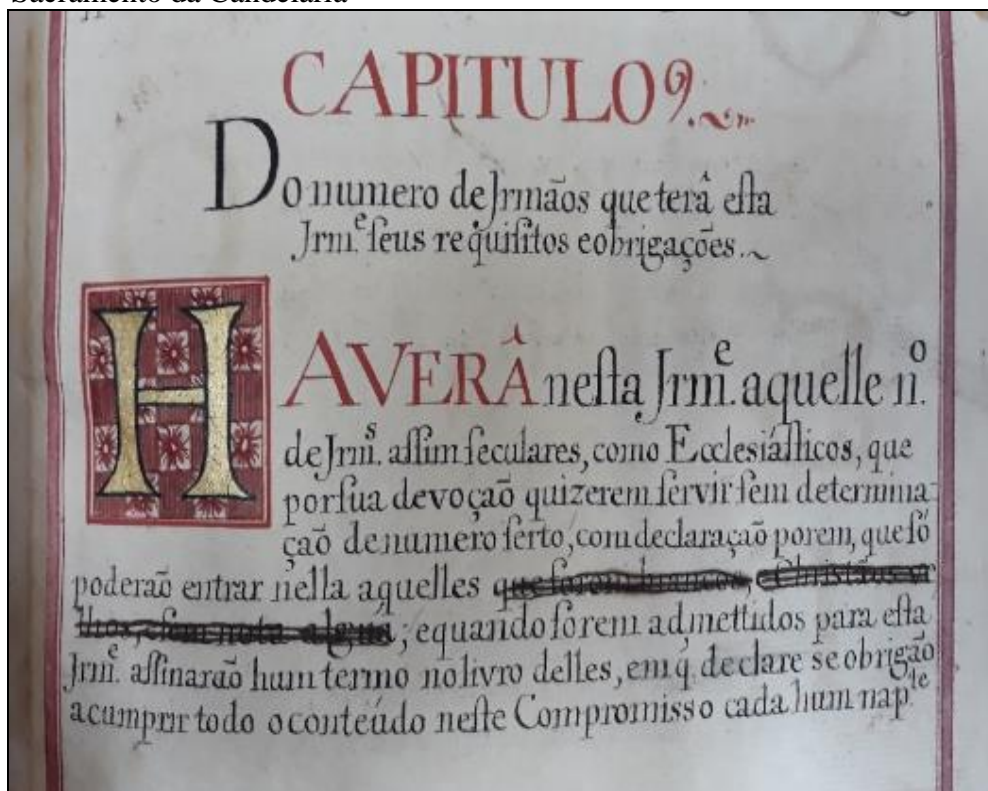 Sacramento da Candelária
CAPITULO 9.
Do numero de Jrmãos que terâ esta
Jrm.ᵉ seus requisitos e obrigações.
HAVERÂ nesta Jrm.ᵉ aquelle n.º
de Jrm.ˢ assim seculares, como Ecclesiásticos, que
por sua devoçaõ quizerem servir sem determina-
çaõ de numero serto, com declaraçaõ porem, que só
poderaõ entrar nella aquelles que forem brancos, e Christãos ve
lhos, e sem nota algúa; e quando forem admettidos para esta
Jrm.ᵉ assinaraõ hum termo no livro delles, em q̃ declare se obrigaõ
a cumprir todo o conteúdo neste Compromisso cada hum na p.ᵗᵉ